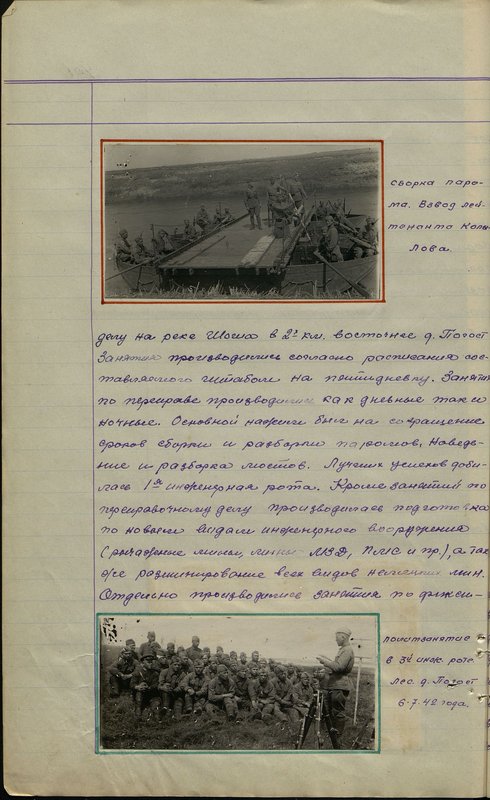 сборка паро-
ма. Взвод лей-
тенанта Копы-
лова.
делу на реке Шоша в 2х км. восточнее д. Погост
Занятия производились согласно расписания сос-
тавляемого штабом на пятидневку. Занятия
по переправе производились как дневные так и
ночные. Основной нажим был на сокращение
сроков сборки и разборки паромов, наведе-
ние и разборка мостов. Лучших успехов доби-
лась 1ая инженерная рота. Кроме занятий по
переправочному делу производилась подготовка
по новым видам инженерного вооружения
(рычажные мины, мины МЗД, ПМС и пр.), а так
же разминирование всех видов немецких мин.
Отдельно производились занятия по
политзанятие
в 3й инж. роте.
Лес. д. Погост
6.7.42 года.